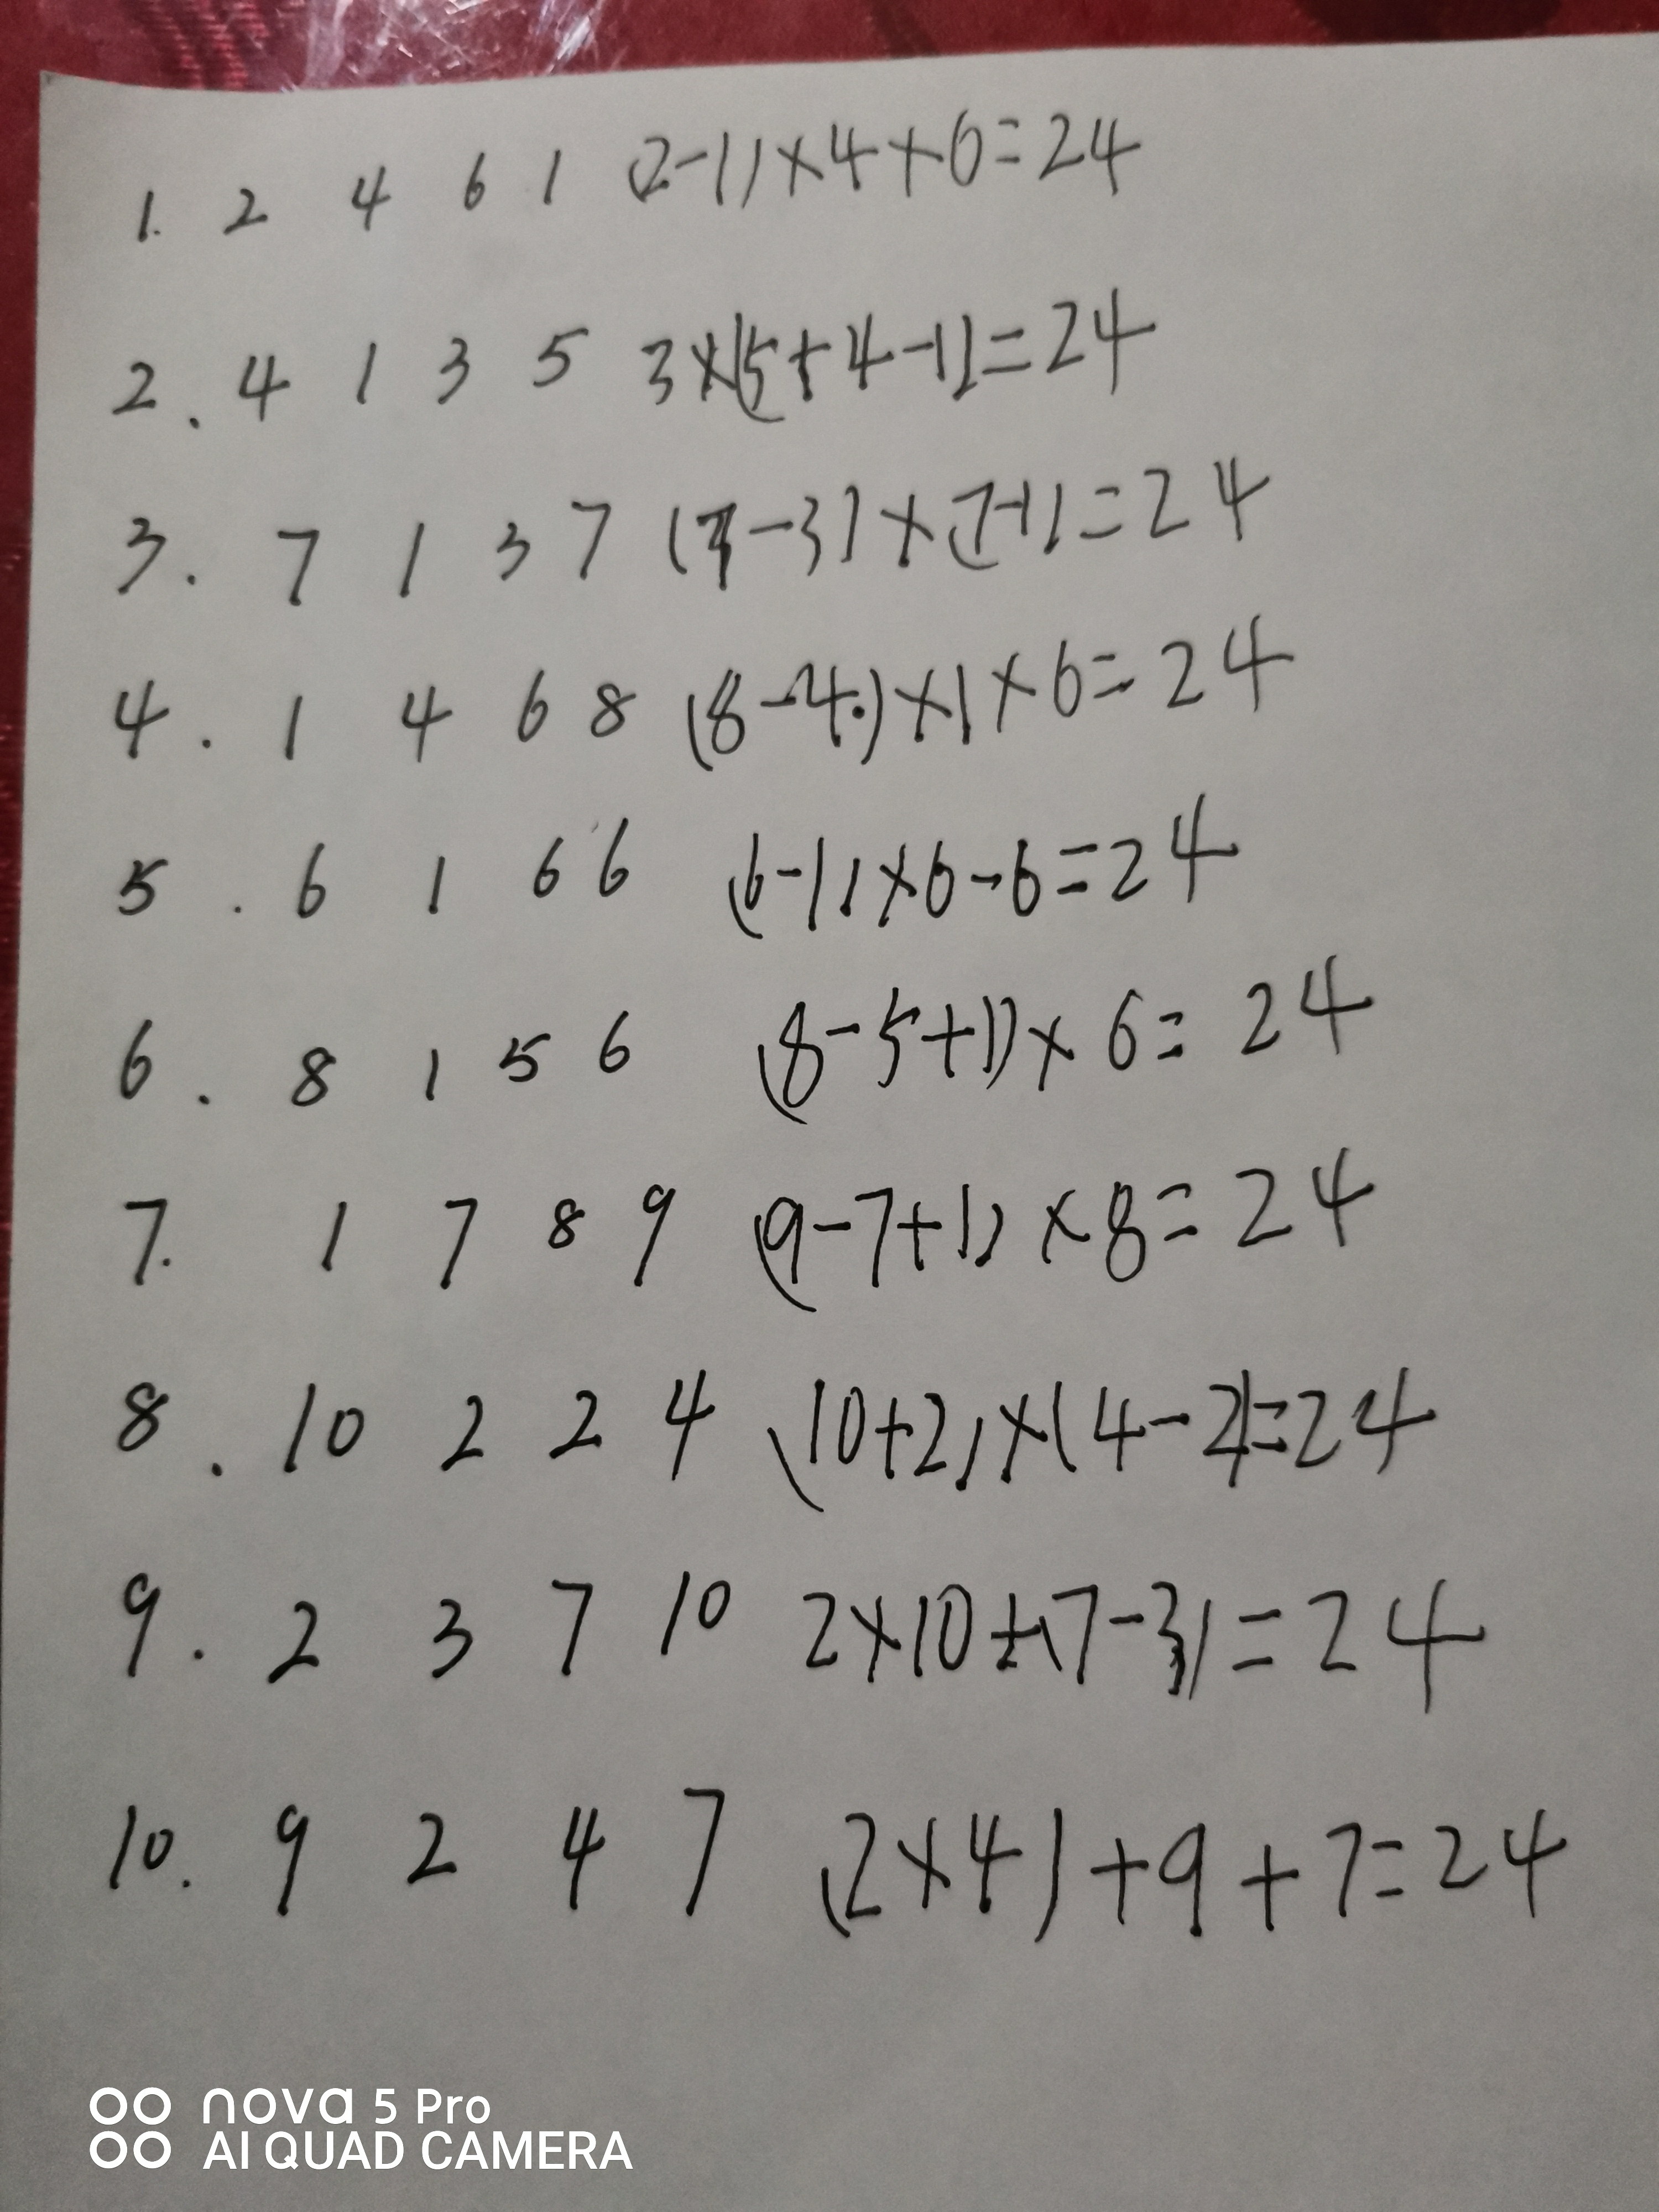 1. 2 4 6 1 (2-1)×4×6=24
2. 4 1 3 5 3×(5+4-1)=24
3. 7 1 3 7 (7-3)×(7-1)=24
4. 1 4 6 8 (8-4)×1×6=24
5. 6 1 6 6 (6-1)×6-6=24
6. 8 1 5 6 (8-5+1)×6=24
7. 1 7 8 9 (9-7+1)×8=24
8. 10 2 2 4 (10+2)×(4-2)=24
9. 2 3 7 10 2×10+(7-3)=24
10. 9 2 4 7 (2×4)+9+7=24
nova 5 Pro
AI QUAD CAMERA